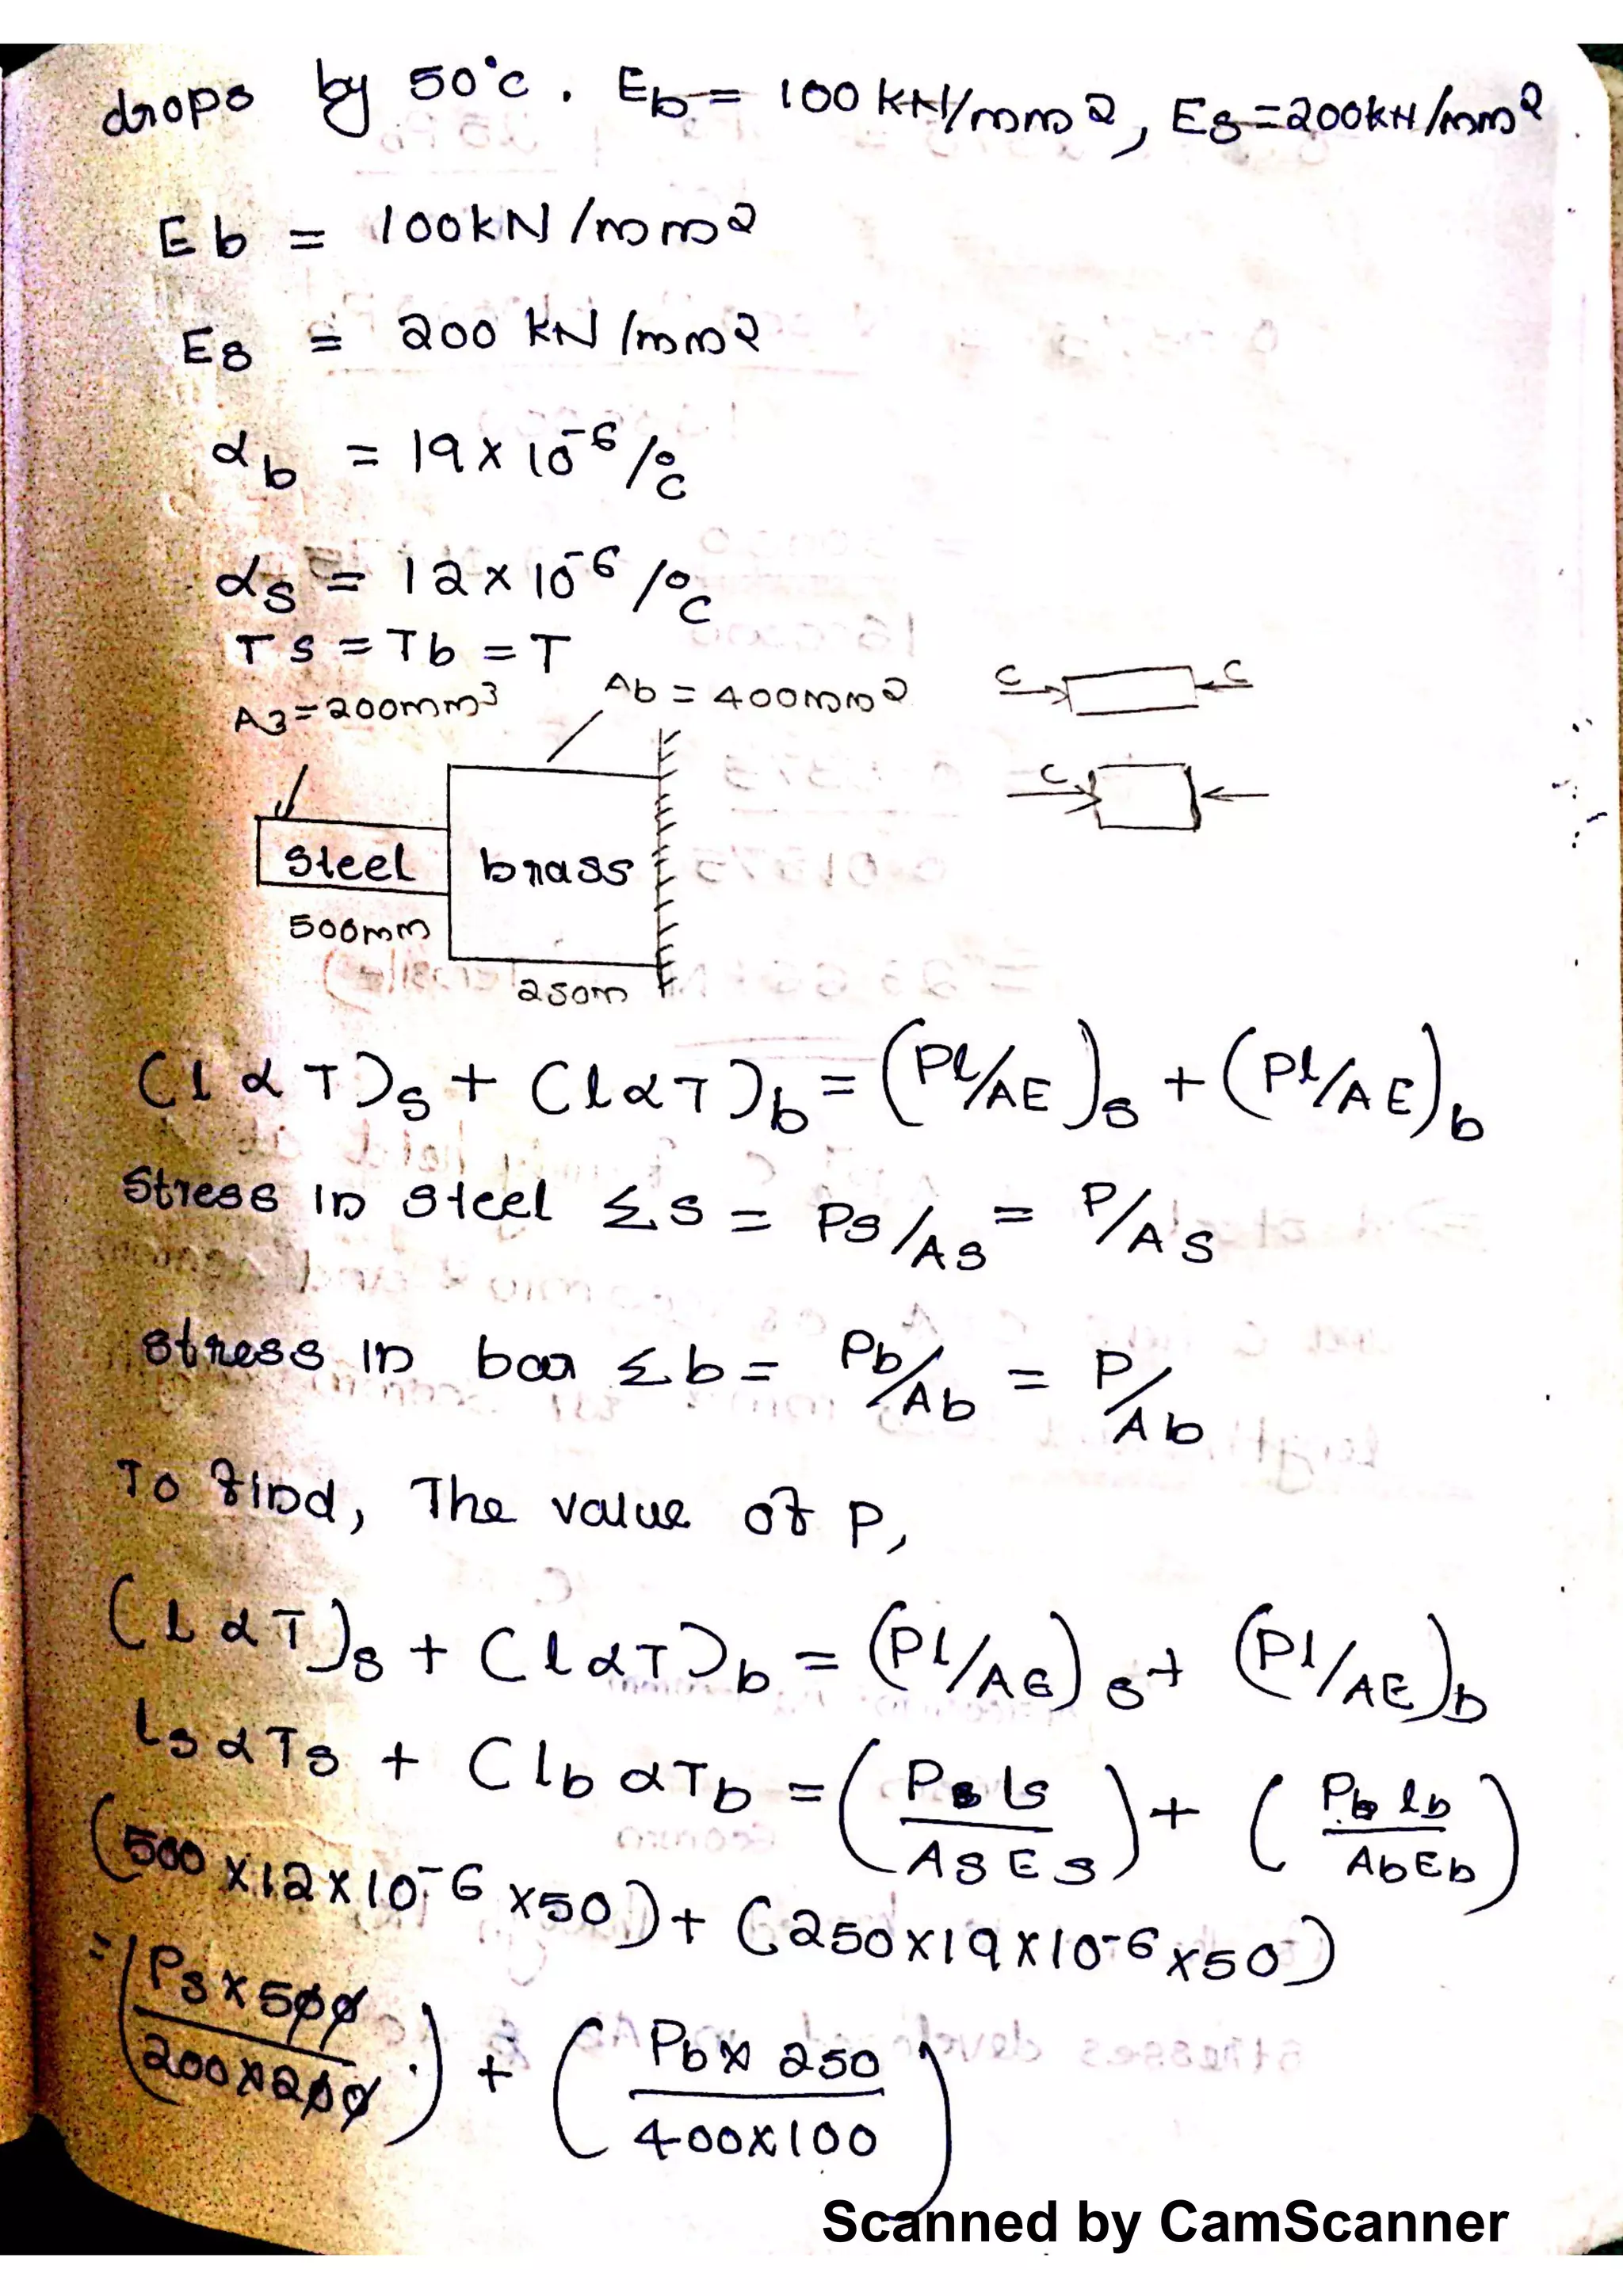 drops by 50°c. Eb = 100 kN/mm2, Es=200kN/mm2
Eb = 100kN/mm2
Es = 200 kN/mm2
αb = 19 x 10-6/°c
αs = 12 x 10-6/°c
Ts = Tb = T
A3=200mm3
Ab = 400mm2
c c
c
steel
brass
500mm
250m
(l α T)s + (l α T)b = (Pl/AE)s + (Pl/AE)b
Stress in steel Σs = Ps/As = P/As
stress in bar Σb = Pb/Ab = P/Ab
To find, The value of P,
(l α T)s + (l α T)b = (Pl/AE)s + (Pl/AE)b
ls α Ts + (lb α Tb = (Ps ls / As Es) + (Pb lb / Ab Eb)
(500 x 12 x 10-6 x 50) + (250 x 19 x 10-6 x 50)
= (Ps x 500 / 200 x 200) + (Pb x 250 / 400 x 100)
Scanned by CamScanner